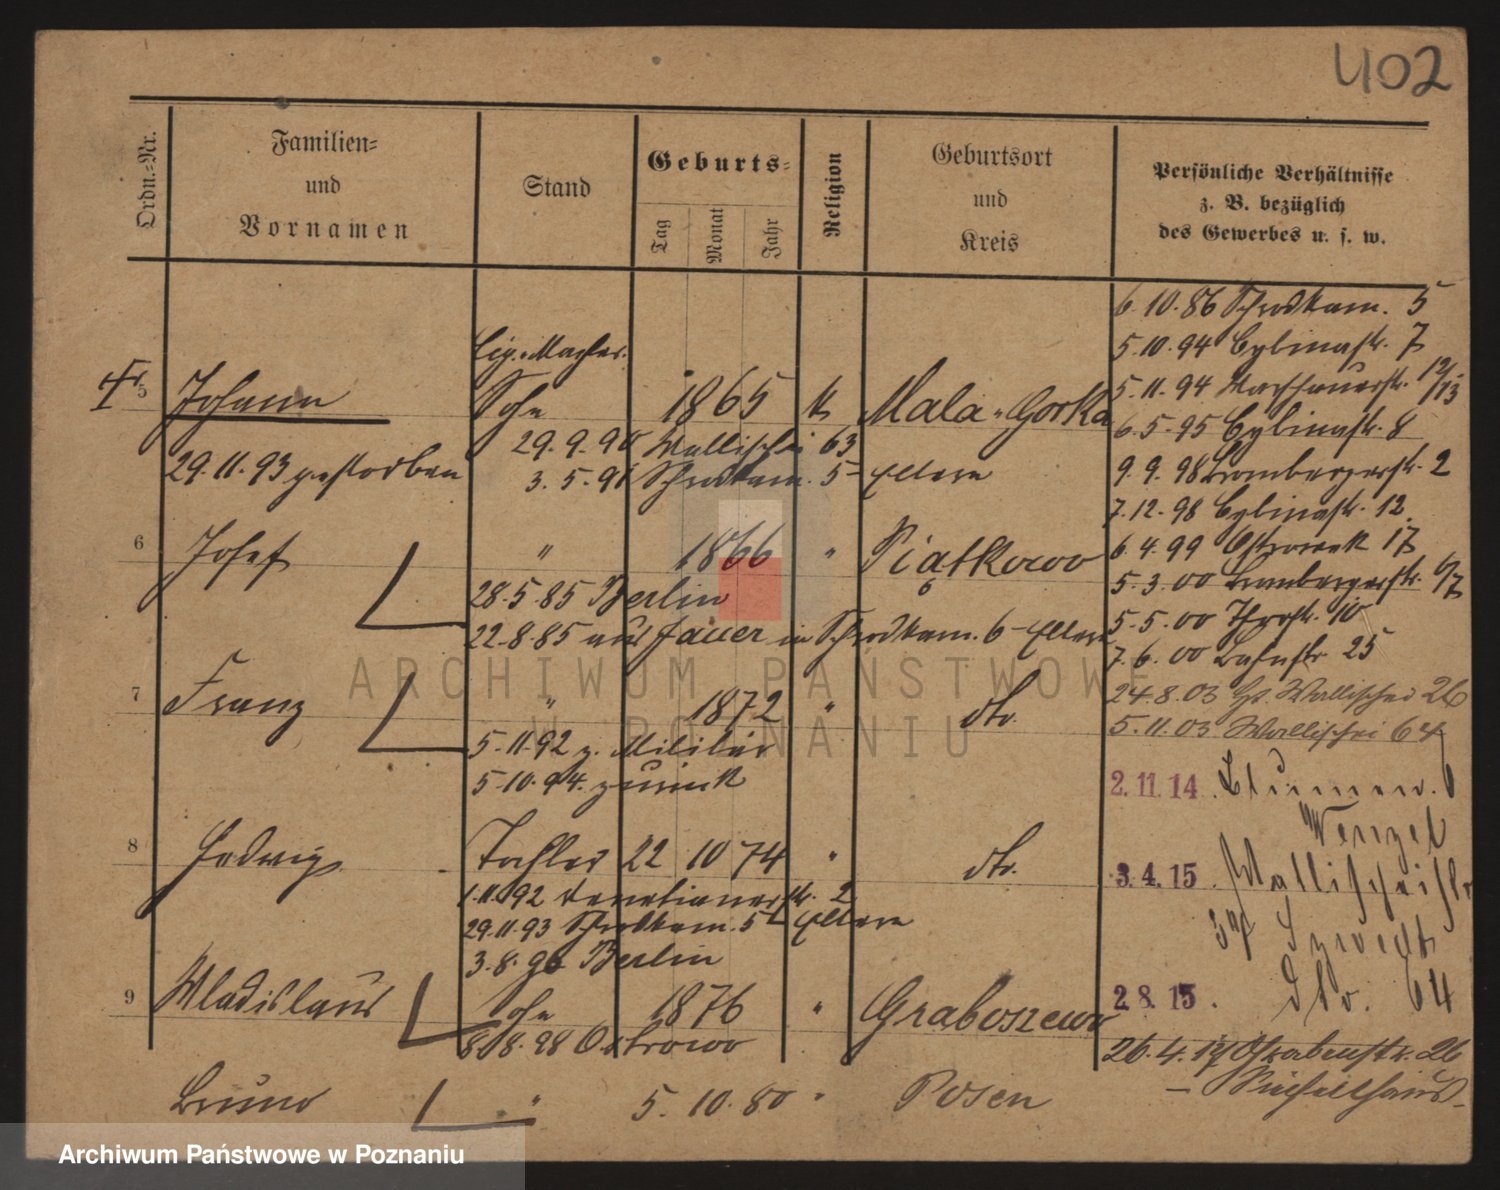 402
Ordn.-Nr.
Familien-
und
Vornamen
Stand
Geburts-
Tag
Monat
Jahr
Religion
Geburtsort
und
Kreis
Persönliche Verhältnisse
z. B. bezüglich
des Gewerbes u. s. w.
6.10.86 Schrodkam. 5
5.10.94 Cybinastr. 7
5.11.94 Warschauerstr. 12/13
6.5.95 Cybinastr. 8
9.9.98 Brombergerstr. 2
7.12.98 Cybinastr. 12
6.4.99 Ostrowek 17
5.3.00 Brombergerstr. 6/7
5.5.00 Thorstr. 10
7.6.00 Bahnstr 25
24.8.03 Gr. Wallischei 26
5.11.03 Wallischei 64
2.11.14. Blumen. 6
Wenzel
3.4.15. Wallischeistr
37 Szwedt
2 8.15. dto. 64
26.4.17 Grabenstr. 26
5 Johann
Sohn 1865 k Mala-Gorka
29.11.93 gestorben
29.9.90 Wallischei 63
3.5.91 Schrodkam. 5 - Eltern
6 Josef " 1866 " Piątkowo
28.5.85 Berlin
22.8.85 aus Jauer in Schrodkam. 6 - Eltern
7 Franz " 1872 " dto.
5.11.92 z. Militär
5.10.94. zurück
8 Hedwig Tochter 22 10 74 " dto.
1.11.92 Venetianerstr. 2
29.11.93 Schrodkam. 5 Eltern
3.8.96 Berlin
9 Wladislaus Sohn 1876 " Graboszewo
8.8.98 Ostrowo
Bruno " 5. 10. 80 " Posen
ARCHIWUM PAŃSTWOWE
W POZNANIU
Archiwum Państwowe w Poznaniu